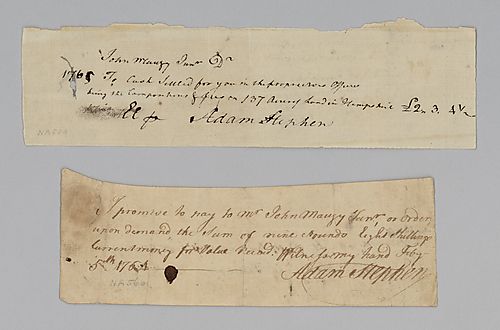 John Mauzy Junr Dr
1765 To Cash Settled for you in the proprietors Office
being the Composition & fees on 137 Acres land in Hampshire £2.. 3. 4½
E.
Adam Stephen
NA559
I promise to pay to Mr John Mauzy Junr or Order
upon demand the Sum of nine Pounds Eight Shillings
Currt money for Value Receivd. Witness my hand Feby
5th 176
Adam Stephen
NA560